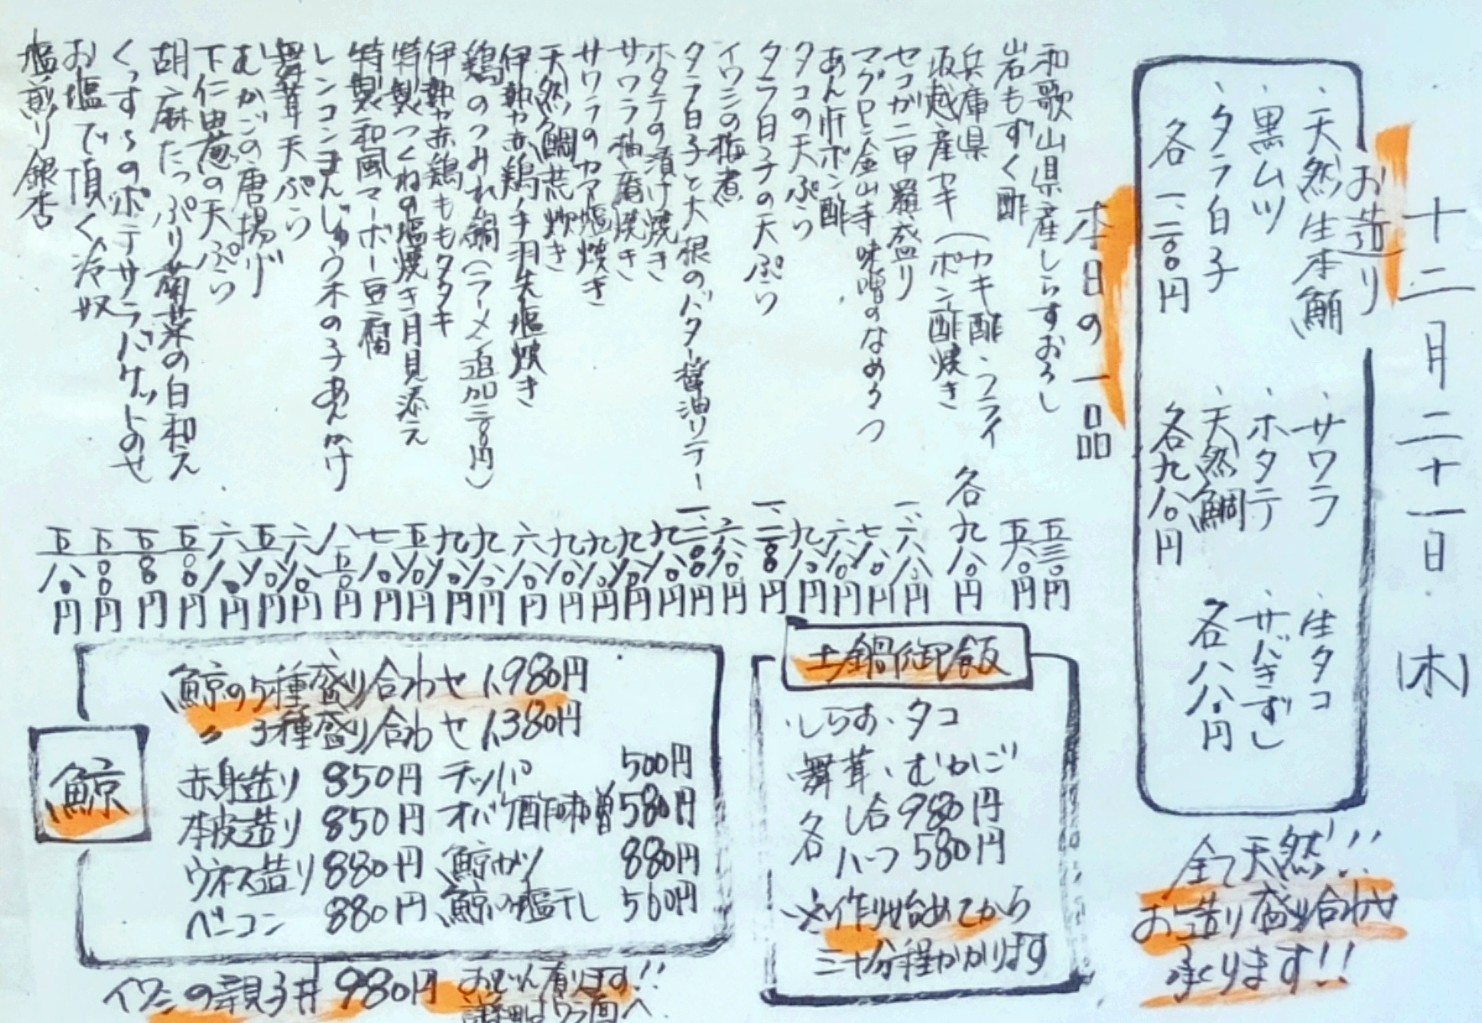 十二月二十一日（木）
お造り
・天然生本鮪
・黒ムツ
・タラ白子
各一、二八〇円
・サワラ
・ホタテ
・天然鯛
各九八〇円
・生タコ
・サバきずし
各八八〇円
全て天然!!
お造り盛り合わせ
承ります!!
本日の一品
和歌山県産しらすおろし 五三〇円
岩もずく酢 五八〇円
兵庫県
坂越産カキ（カキ酢・フライ
ポン酢焼き 各九八〇円
セコガニ甲羅盛り 一、六八〇円
マグロと金山寺味噌のなめろう 七八〇円
あん肝ポン酢 六八〇円
タコの天ぷら 九八〇円
タラ白子の天ぷら 一、二八〇円
イワシの梅煮 六八〇円
タラ白子と大根のバター醤油ソテー 一、二八〇円
ホタテの漬け焼き 九八〇円
サワラ柚庵焼き 九八〇円
サワラのカマ塩焼き 九八〇円
天然鯛荒炊き 九八〇円
伊勢赤鶏手羽先塩焼き 六八〇円
鶏のつみれ鍋（ラーメン追加三〇〇円） 九八〇円
伊勢赤鶏ももタタキ 九八〇円
特製つくねの塩焼き月見添え 五八〇円
特製和風マーボー豆腐 七八〇円
レンコンまんじゅう木の子あんかけ 八五〇円
舞茸天ぷら 六八〇円
むかごの唐揚げ 五八〇円
下仁田葱の天ぷら 六八〇円
胡麻たっぷり菊菜の白和え 五五〇円
くっすんのポテサラバケットのせ 五五〇円
お塩で頂く冷奴 五五〇円
塩煎り銀杏 五八〇円
土鍋御飯
・しらす・タコ
舞茸・むかご
各 一合 980円
ハーフ 580円
※作り始めてから
三十分程かかります
鯨
鯨の5種盛り合わせ 1,980円
〃 3種盛り合わせ 1,380円
赤身造り 850円
本皮造り 850円
ウネス造り 880円
ベーコン 880円
テッパ 500円
オバケ酢味噌 580円
鯨カツ 880円
鯨の塩干し 560円
イワシの親子丼 980円
おでん有ります!!
詳細はウラ面へ